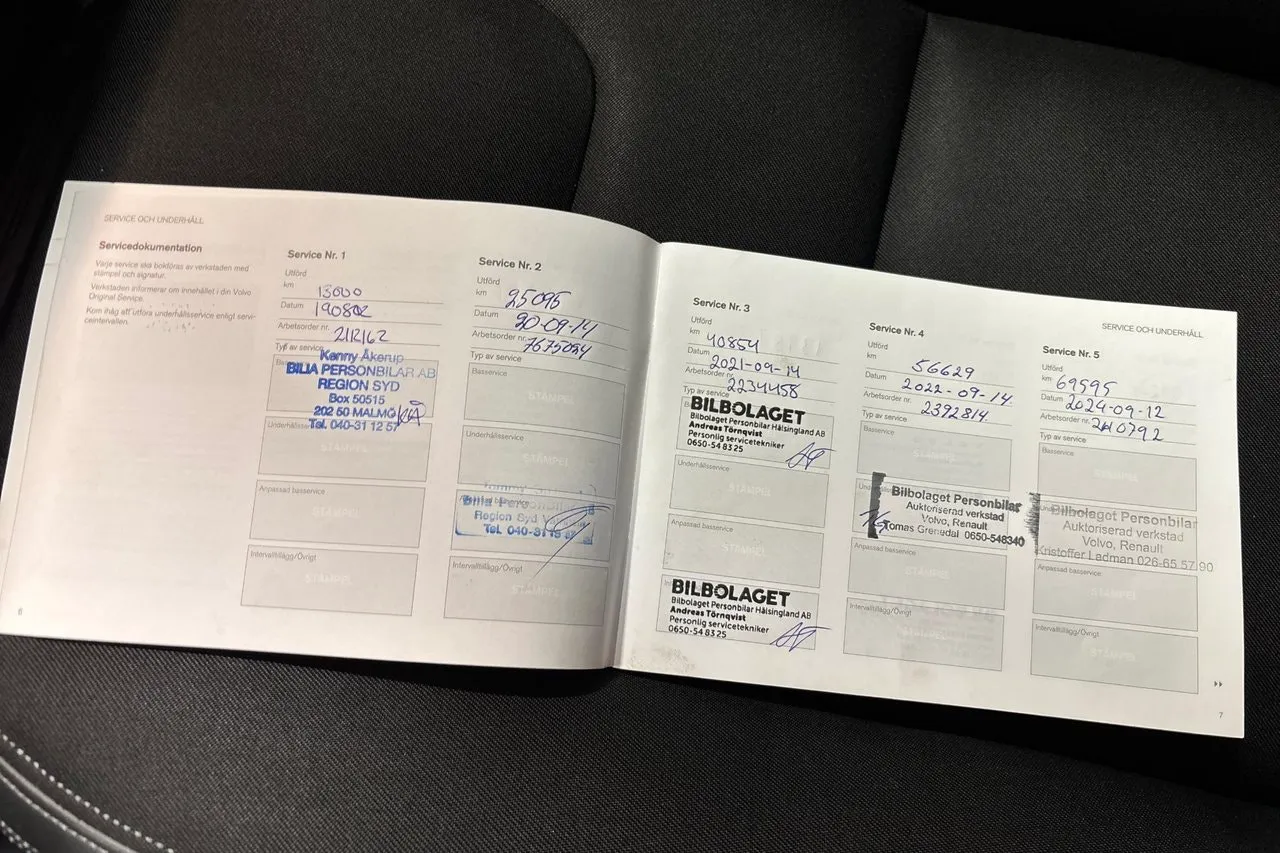 SERVICE OCH UNDERHÅLL
Servicedokumentation
Varje service ska bokföras av verkstaden med
stämpel och signatur.
Verkstaden informerar om innehållet i din Volvo
Original Service.
Kom ihåg att utföra underhållsservice enligt servi-
ceintervallen.
6
Service Nr. 1
Utförd
km 13000
Datum 190802
Arbetsorder nr.
Typ av service
Kenny Åkerup
BILIA PERSONBILAR AB
REGION SYD
Box 50515
202 50 MALMÖ
Tel. 040-31 12 57
Underhållsservice
STÄMPEL
Anpassad basservice
STÄMPEL
Intervalltillägg/Övrigt
STÄMPEL
Service Nr. 2
Utförd
km 25095
Datum 20-09-14
Arbetsorder nr. 7675094
Typ av service
Basservice
STÄMPEL
Underhållsservice
STÄMPEL
Anpassad basservice
Bilia
Region Syd
Tel. 040-31
Intervalltillägg/Övrigt
STÄMPEL
Service Nr. 3
Utförd
km 40854
Datum 2021-09-14
Arbetsorder nr. 2234458
Typ av service
BILBOLAGET
Bilbolaget Personbilar Hälsingland AB
Andreas Törnqvist
Personlig servicetekniker
0650-54 83 25
Underhållsservice
STÄMPEL
Anpassad basservice
STÄMPEL
BILBOLAGET
Bilbolaget Personbilar Hälsingland AB
Andreas Törnqvist
Personlig servicetekniker
0650-54 83 25
SERVICE OCH UNDERHÅLL
Service Nr. 4
Utförd
km 56629
Datum 2022-09-14
Arbetsorder nr. 2392814
Typ av service
Basservice
STÄMPEL
Bilbolaget Personbilar
Auktoriserad verkstad
Volvo, Renault
Tomas Grenedal 0650-548340
Anpassad basservice
STÄMPEL
Intervalltillägg/Övrigt
STÄMPEL
Service Nr. 5
Utförd
km 69595
Datum 2024-09-12
Arbetsorder nr. 2610792
Typ av service
Basservice
STÄMPEL
Bilbolaget Personbilar
Auktoriserad verkstad
Volvo, Renault
Kristoffer Ladman 026-65 57 90
Anpassad basservice
STÄMPEL
Intervalltillägg/Övrigt
STÄMPEL
7